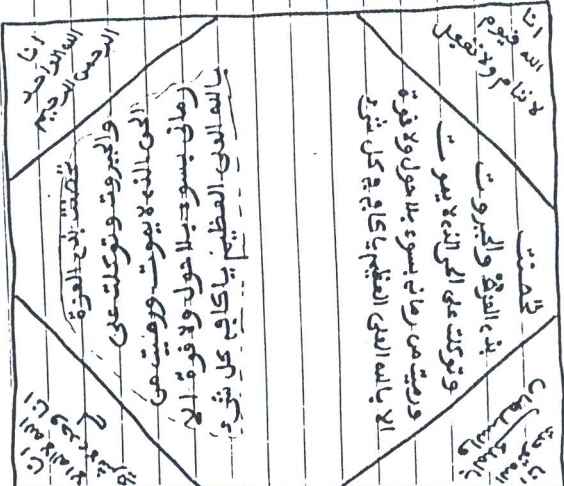 انا
الله قيوم
لا ننام ولا نغفل
انا
الله الواحد
الرحمن الرحيم
تحصنت
بذى القوة والجبروت
وتوكلت على الحى الذى لا يموت
ورميت من رمانى بسوء بلا حول ولا قوة
الا بالله العلى العظيم يا كافى كل شىء
تحصنت بذى العزة
والجبروت وتوكلت على
الحى الذى لا يموت ورميت من
رمانى بسوء بلا حول ولا قوة الا
بالله العلى العظيم يا كافى كل شىء
انا
الله
انا
الله